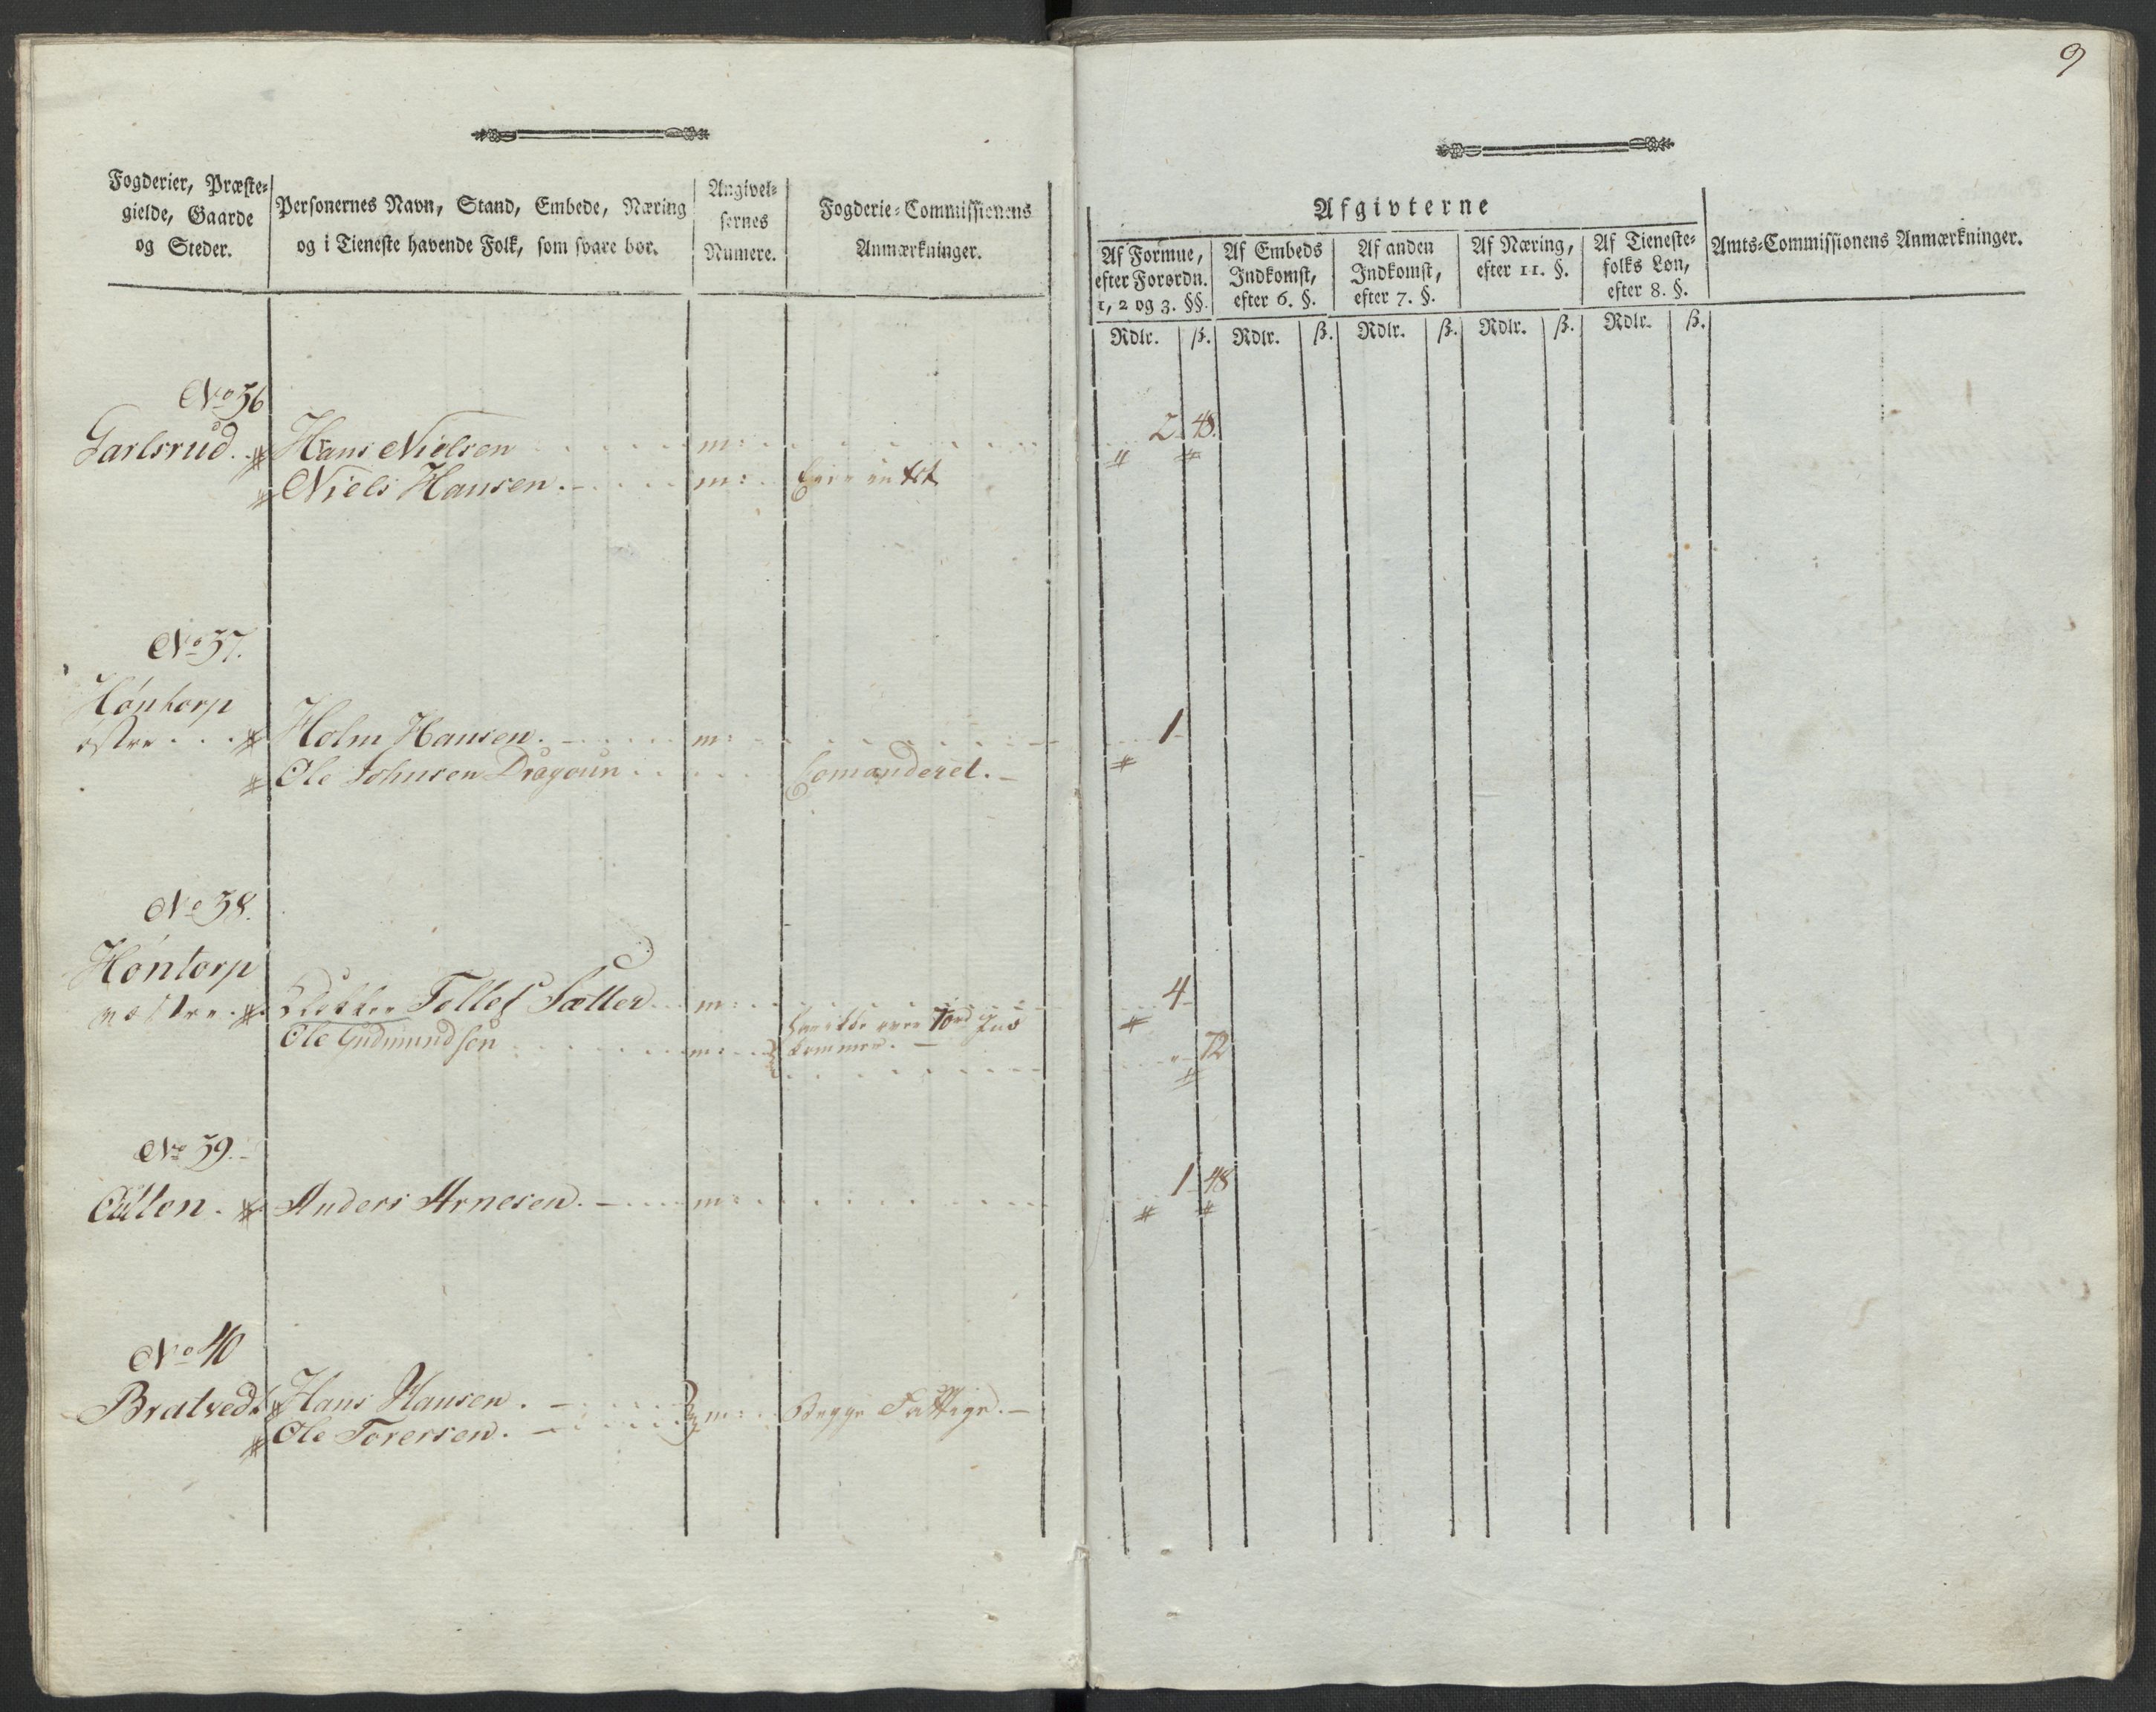 9
Fogderier, Præste-
gielde, Gaarde
og Steder.
Personernes Navn, Stand, Embede, Næring
og i Tieneste havende Folk, som svare bør.
Angivel-
sernes
Numere.
Fogderie-Commissionens
Anmærkninger.
Afgivterne
Af Formue,
efter Forordn.
1, 2 og 3. §§.
Af Embeds
Indkomst,
efter 6. §.
Af anden
Indkomst,
efter 7. §.
Af Næring,
efter 11. §.
Af Tieneste-
folks Løn,
efter 8. §.
Amts-Commissionens Anmærkninger.
Rdlr. ß. Rdlr. ß. Rdlr. ß. Rdlr. ß. Rdlr. ß.
No 36
Garlsrud. Hans Nielsen m: 2 48.
Niels Hansen. m: Eier intet
No 37.
Höntorp
østre Holm Hansen. m: 1
Ole Johnsen Dragoun Comanderet.
No 38.
Höntorp
vestre Tollef Sætter m: 4
Ole Gudmundsen m: 72
No 39.
Anders Arnesen. m: 1 48
No 40
Bratved. Hans Hansen. m: Begge Fattige.
Ole Torersen.